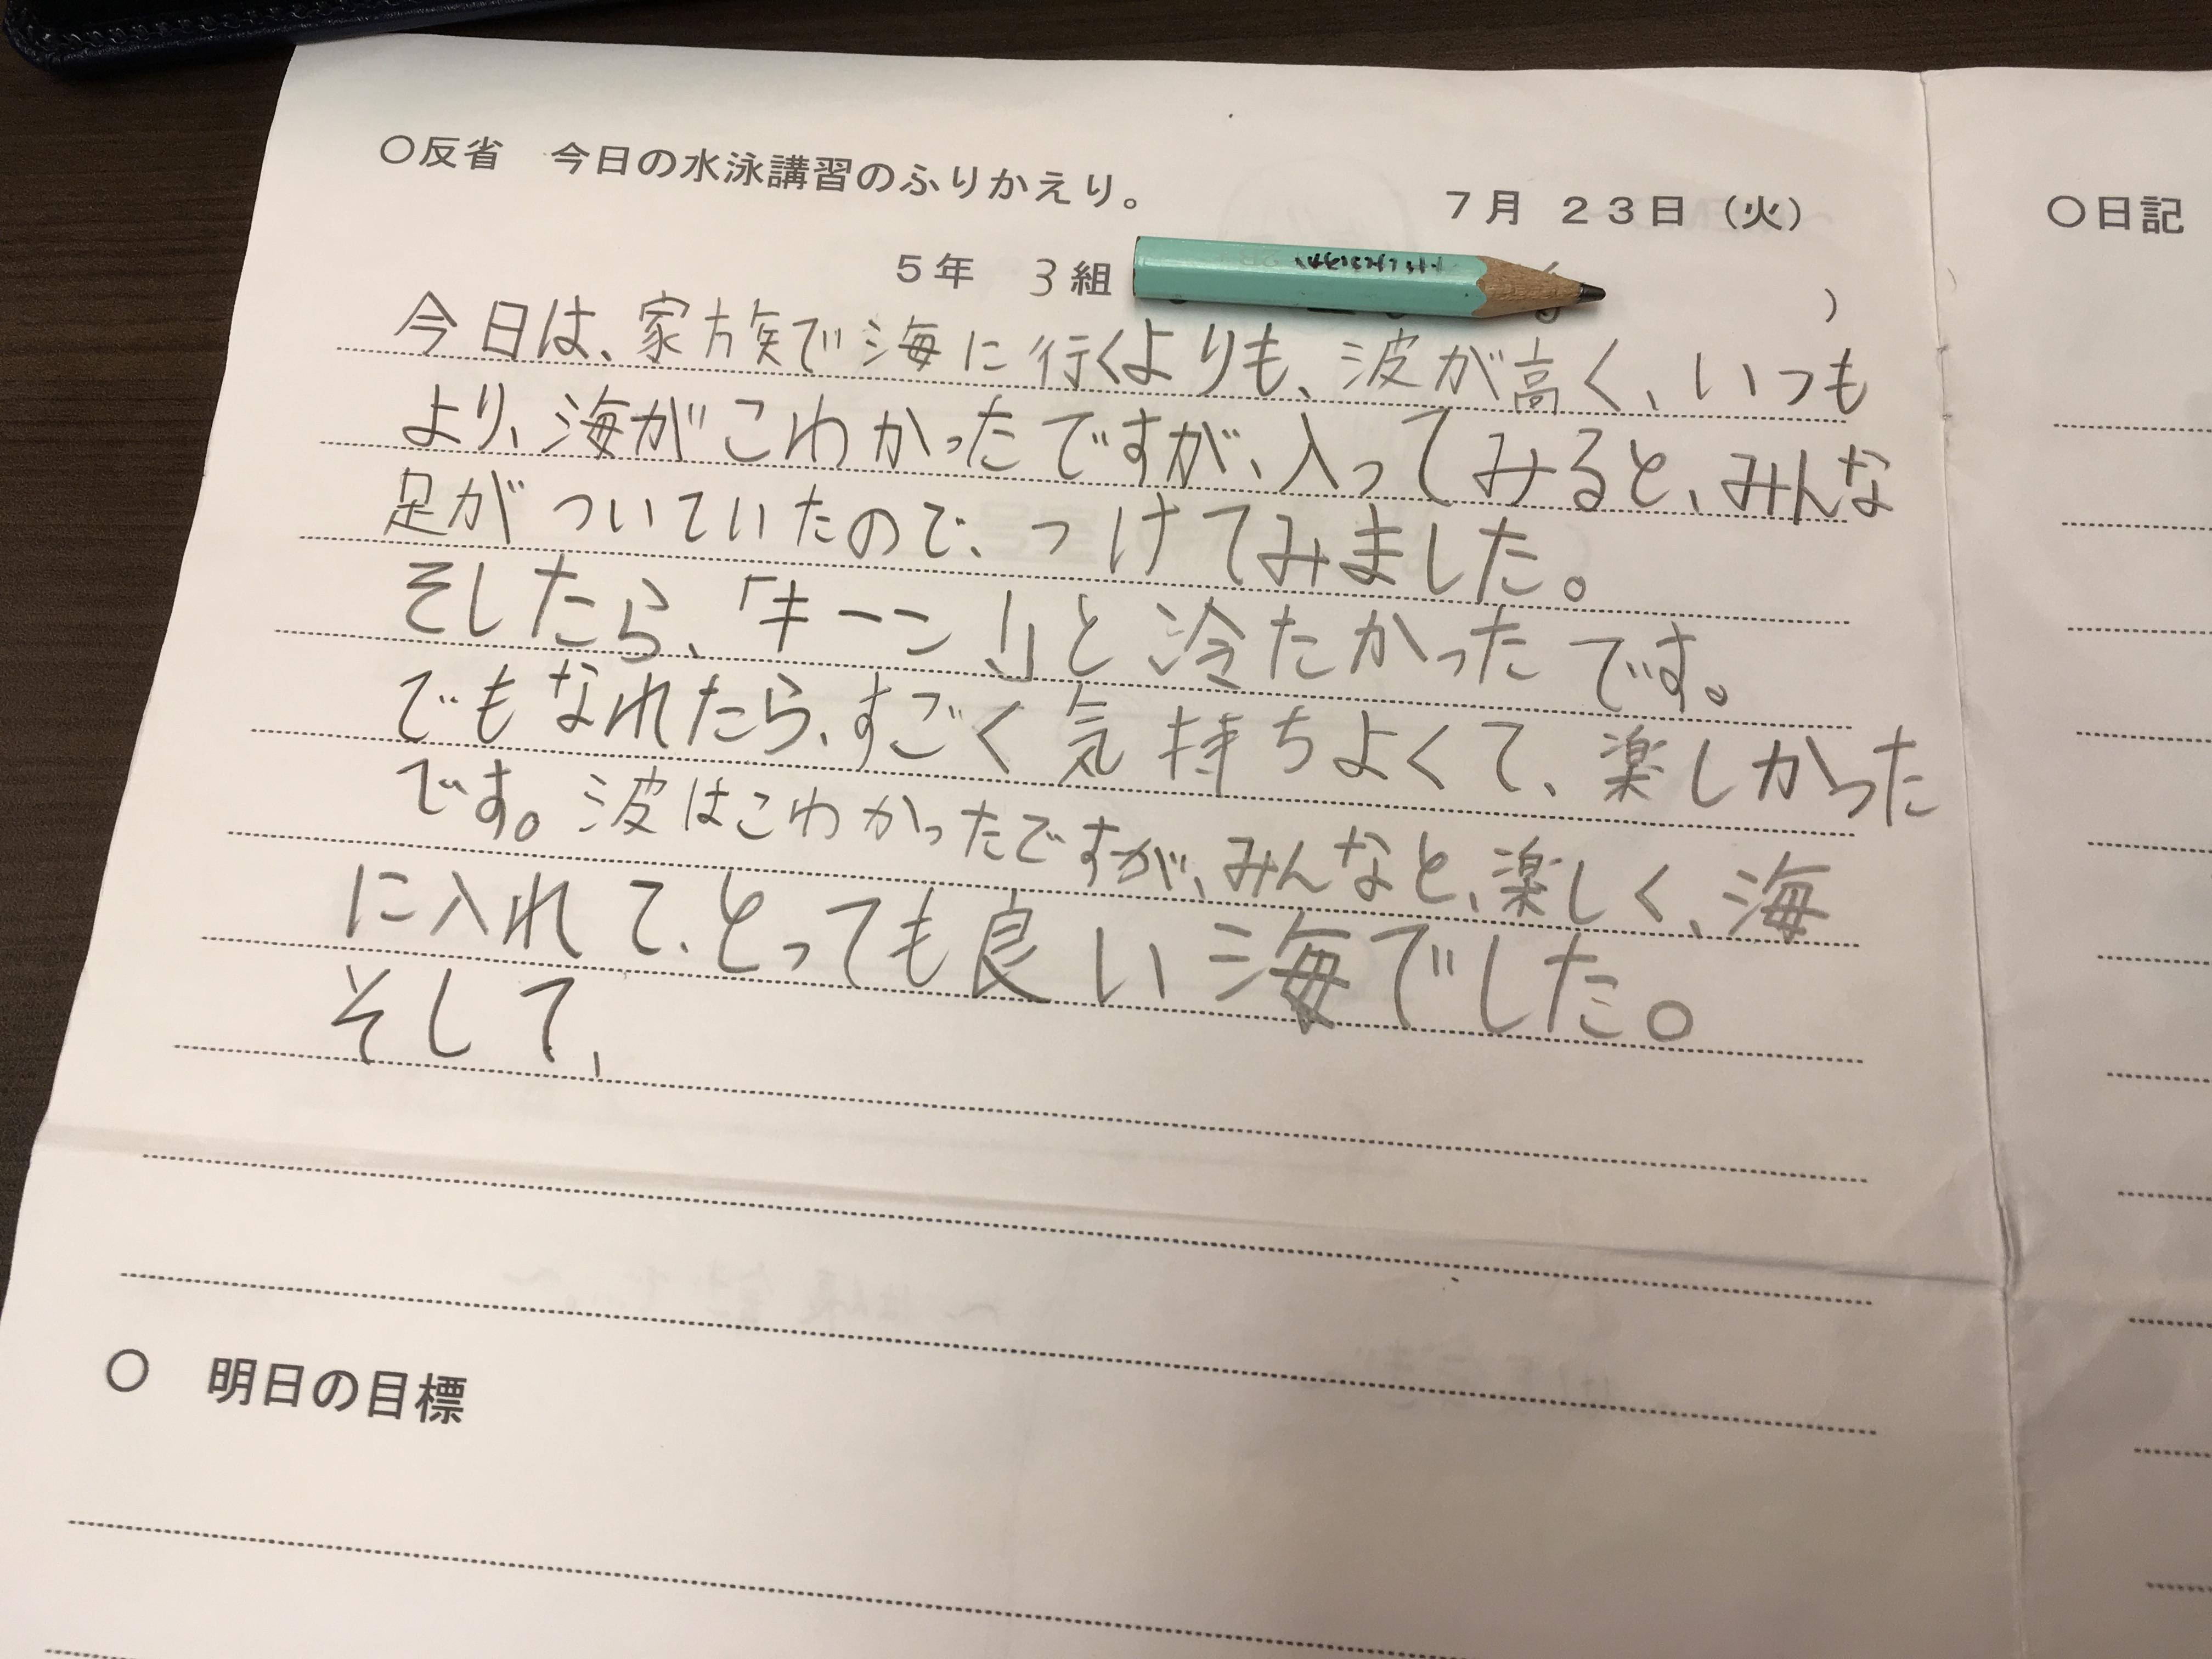 ○反省　今日の水泳講習のふりかえり。
７月 ２３日（火）
５年 3組
）
今日は、家族で海に行くよりも、波が高く、いつも
より、海がこわかったですが、入ってみると、みんな
足がついていたので、つけてみました。
そしたら、「キーン!」と冷たかったです。
でもなれたら、すごく気持ちよくて、楽しかった
です。波はこわかったですが、みんなと、楽しく、海
に入れて、とっても良い海でした。
そして、
○　明日の目標
○日記